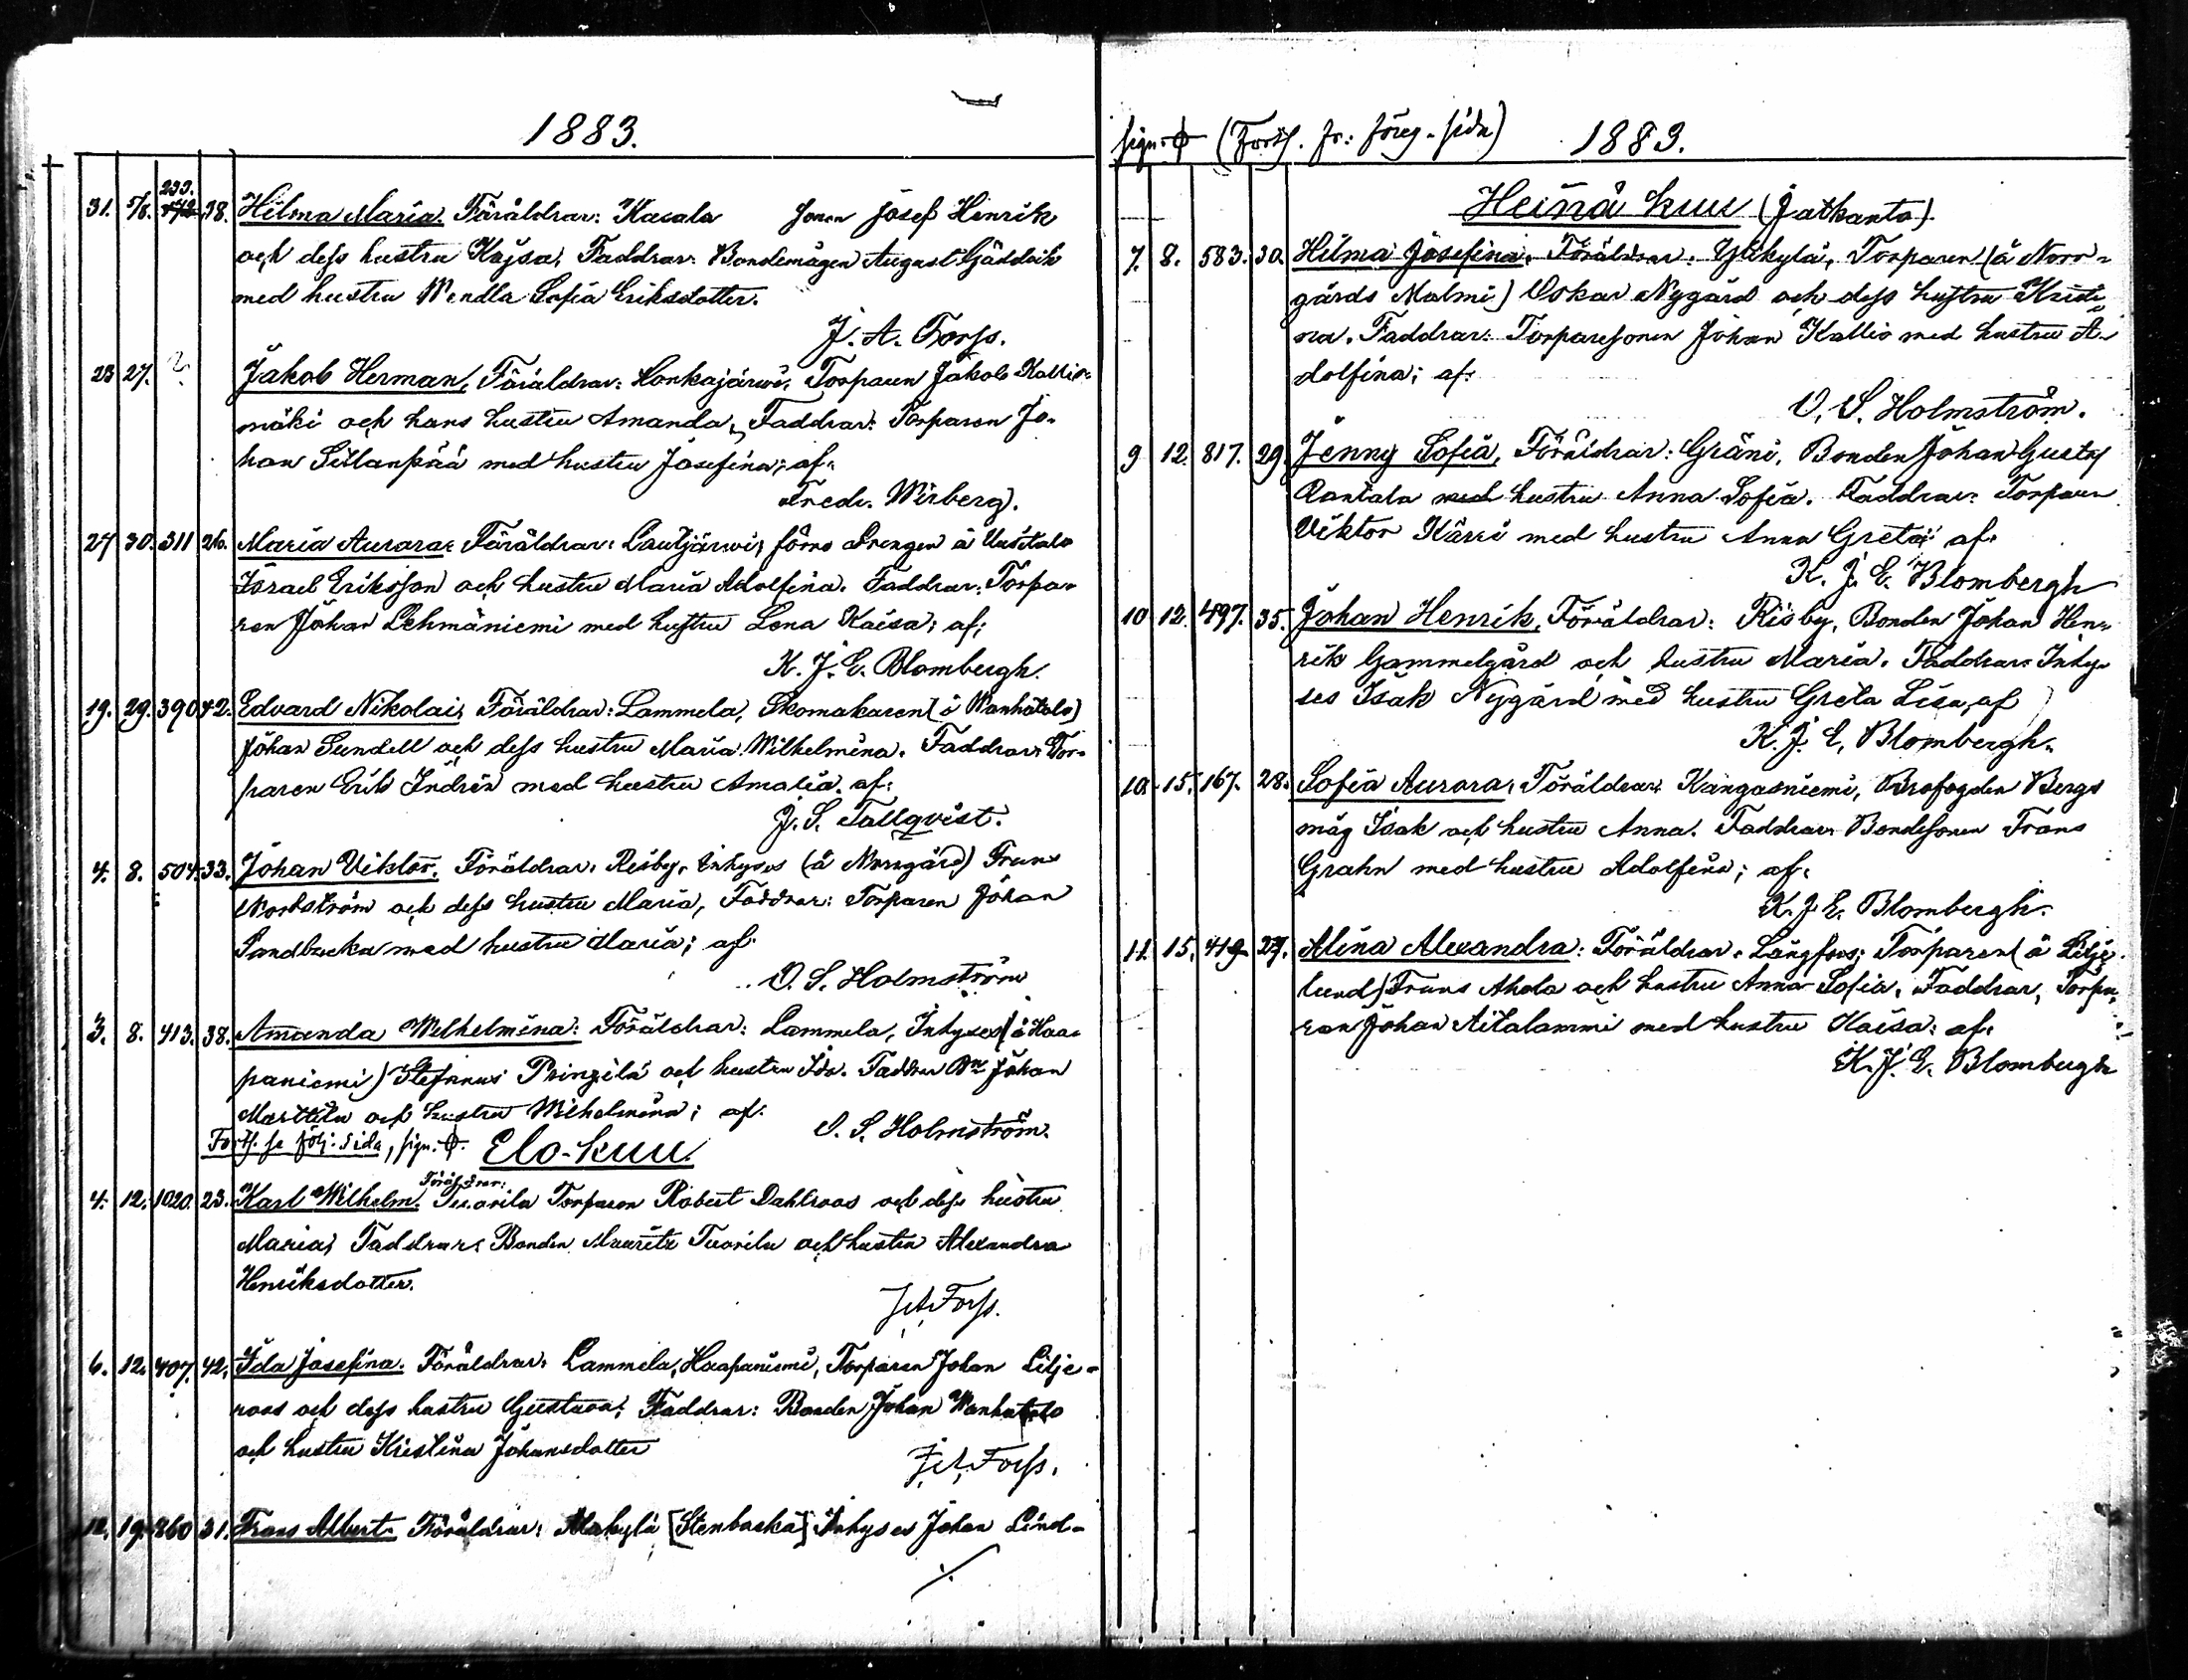 1883.
31. 5/8. 233. 38. Hilma Maria. Föräldrar: Kasala sonen Josef Henrik
och dess hustru Kajsa, Faddrar: Bondemågen August Gäddvik
med hustru Wendla Sofia Eriksdotter.
J. A. Forss.
23 27. ? Jakob Herman, Föräldrar: Honkajärwi, Torparen Jakob Kallio-
mäki och hans hustru Amanda, Faddrar: Torparen Jo-
han Sillanpää med hustru Josefina; af:
Fredr. Wirberg.
27 30. 311 26. Maria Aurora: Föräldrar: Lautjärwi, förre drengen å Uusitalo
Israel Eriksson och hustru Maria Adolfina. Faddrar: Torpa-
ren Johan Lehmäniemi med hustru Lena Kaisa; af;
K. J. E. Blombergh.
19. 29. 390 42. Edvard Nikolai, Föräldrar: Lammela, Skomakaren (å Wanhatalo)
Johan Sundell och dess hustru Maria Wilhelmina. Faddrar: Tor-
paren Erik Indrén med hustru Amalia. af:
J. S. Tallqvist.
4. 8. 504. 33. Johan Viktor. Föräldrar: Risby, Inhyses (å Norrgård) Frans
Nordström och dess hustru Maria, Faddrar: Torparen Johan
Sandbacka med hustru Maria; af:
O. S. Holmström
3. 8. 413. 38. Amanda Wilhelmina: Föräldrar: Lammela, Inhyses (å Haa-
paniemi) Stefanus Pringilä och hustru Ida. Faddrar Bn Johan
Marttila och hustru Wilhelmina; af:
O. S. Holmström.
Forts. se följ. sida, sign. ф.
Elo-kuu.
4. 12. 1020. 23. Karl Wilhelm. Föräldrar: Tuorila Torparen Robert Dahlroos och dess hustru
Maria; Faddrar: Bonden Mauritz Tuorila och hustru Alexandra
Henriksdotter.
J. A. Forss.
6. 12. 407. 42. Ida Josefina. Föräldrar: Lammela, Haapaniemi, Torparen Johan Lilje-
roos och dess hustru Gustava; Faddrar: Bonden Johan Wanhatalo
och hustru Kristina Johansdotter
J. A. Forss.
12. 19. 860 31. Frans Albert. Föräldrar: Alakylä [Stenbacka] Inhyses Johan Lind-
./.
sign. ф (Forts. fr: föreg. sida) 1883.
Heinä kuu (Jatkanto).
7. 8. 583. 30. Hilma Josefina, Föräldrar: Ylikylä, Torparen (å Norr-
gårds Malmi) Oskar Nygård och dess hustru Kristi-
na. Faddrar: Torparesonen Johan Kallio med hustru A-
dolfina; af:
O. S. Holmström.
9 12. 817. 29. Jenny Sofia, Föräldrar: Gräni, Bonden Johan Gustaf
Rantala med hustru Anna Sofia. Faddrar: Torparen
Viktor Kärri med hustru Anna Greta; af:
K. J. E. Blombergh
10 12. 497. 35. Johan Henrik, Föräldrar: Risby, Bonden Johan Hen-
rik Gammelgård och hustru Maria. Faddrar: Inhy-
ses Isak Nygård med hustru Greta Lisa, af
K. J. E. Blombergh.
10. 15. 167. 28. Sofia Aurora, Föräldrar: Kangasniemi, Brofogden Bergs
måg Isak och hustru Anna. Faddrar: Bondesonen Frans
Grahn med hustru Adolfina; af:
K. J. E. Blombergh.
11. 15. 419. 27. Alina Alexandra: Föräldrar: Långfors; Torparen (å Lilje-
lund) Frans Ahola och hustru Anna Sofia, Faddrar, Torpa-
ren Johan Aitalammi med hustru Kaisa: af:
K. J. E. Blombergh